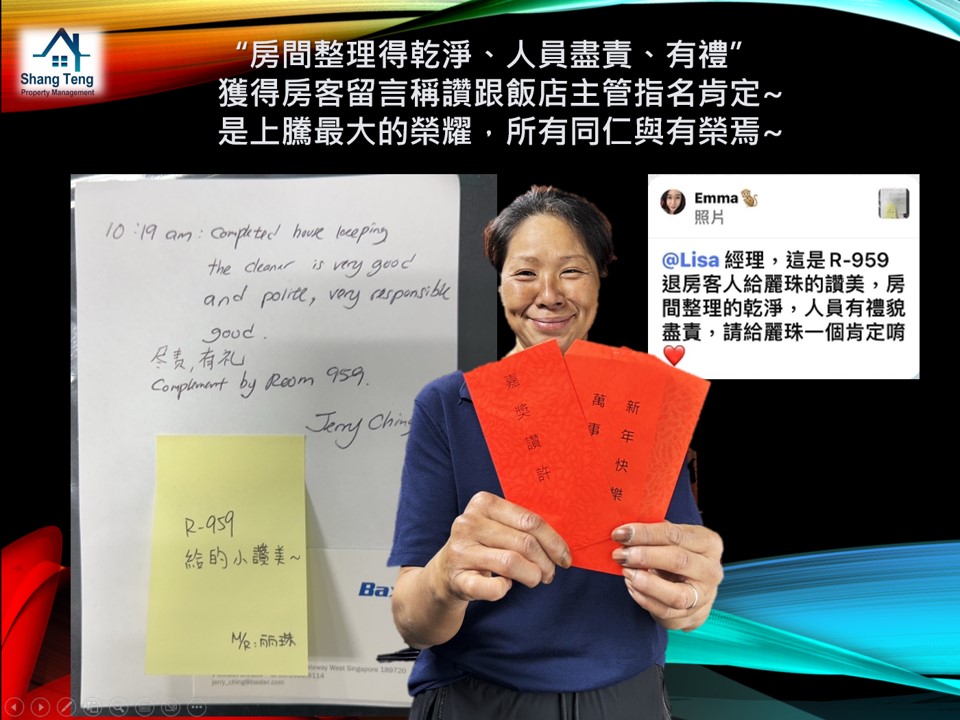 Shang Teng
Property Management
“房間整理得乾淨、人員盡責、有禮”
獲得房客留言稱讚跟飯店主管指名肯定~
是上騰最大的榮耀，所有同仁與有榮焉~
10:19 am: Completed house keeping
the cleaner is very good
and polite, very responsible
good.
尽责,有礼
Complement by Room 959.
Jerry Ching
R-959
給的小讚美~
M/R:丽珠
Bax
way West Singapore 189720
jerry_ching@baxter.com
嘉獎讚許
新年快樂
萬事
Emma
照片
@Lisa 經理，這是 R-959
退房客人給麗珠的讚美，房
間整理的乾淨，人員有禮貌
盡責，請給麗珠一個肯定唷
❤️